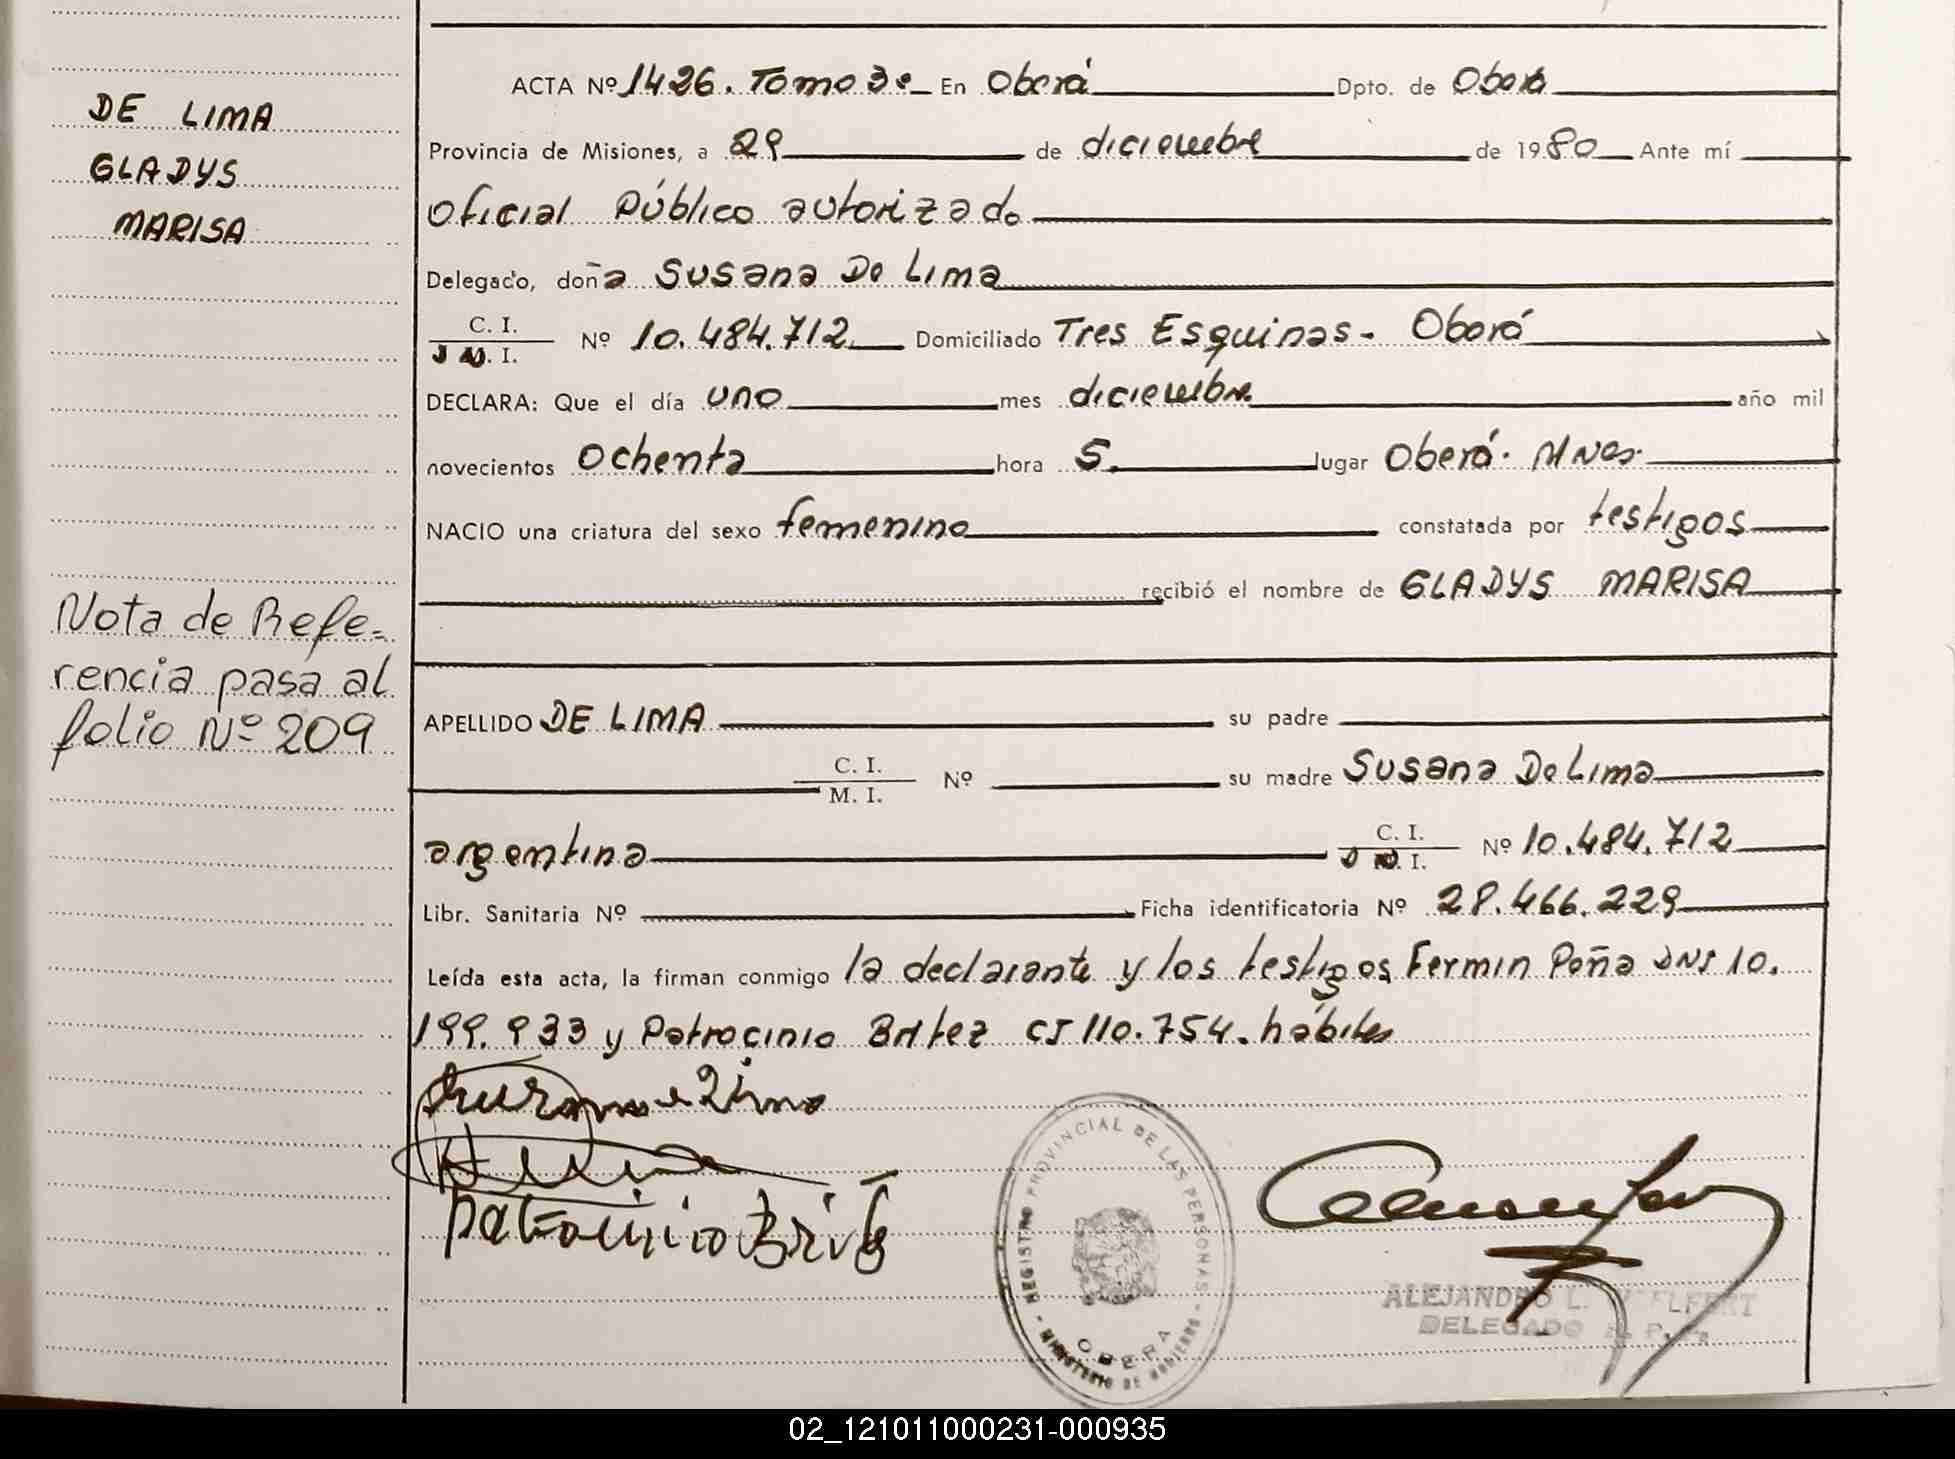 DE LIMA
GLADYS
MARISA
Nota de Refe-
rencia pasa al
folio Nº 209
ACTA Nº 1426. Tomo 3º En Oberá Dpto. de Oberá
Provincia de Misiones, a 29 de diciembre de 1980 Ante mí
Oficial Público autorizado
Delegado, doña Susana De Lima
C. I.
D N. I. Nº 10.484.712 Domiciliado Tres Esquinas - Oberá
DECLARA: Que el día uno mes diciembre año mil
novecientos ochenta hora 5. lugar Oberá. Mnes.
NACIO una criatura del sexo femenino constatada por testigos
recibió el nombre de GLADYS MARISA
APELLIDO DE LIMA su padre
C. I.
M. I. Nº su madre Susana De Lima
argentina C. I.
D N. I. Nº 10.484.712
Libr. Sanitaria Nº Ficha identificatoria Nº 28.466.229
Leída esta acta, la firman conmigo la declarante y los testigos Fermin Peña DNI 10.
199.933 y Patrocinio Britez CI 110.754. hábiles
Patrocinio
REGISTRO PROVINCIAL DE LAS PERSONAS
OBERA
MINISTERIO DE GOBIERNO
ALEJANDRO L.
DELEGADO R. P. P.
02_121011000231-000935